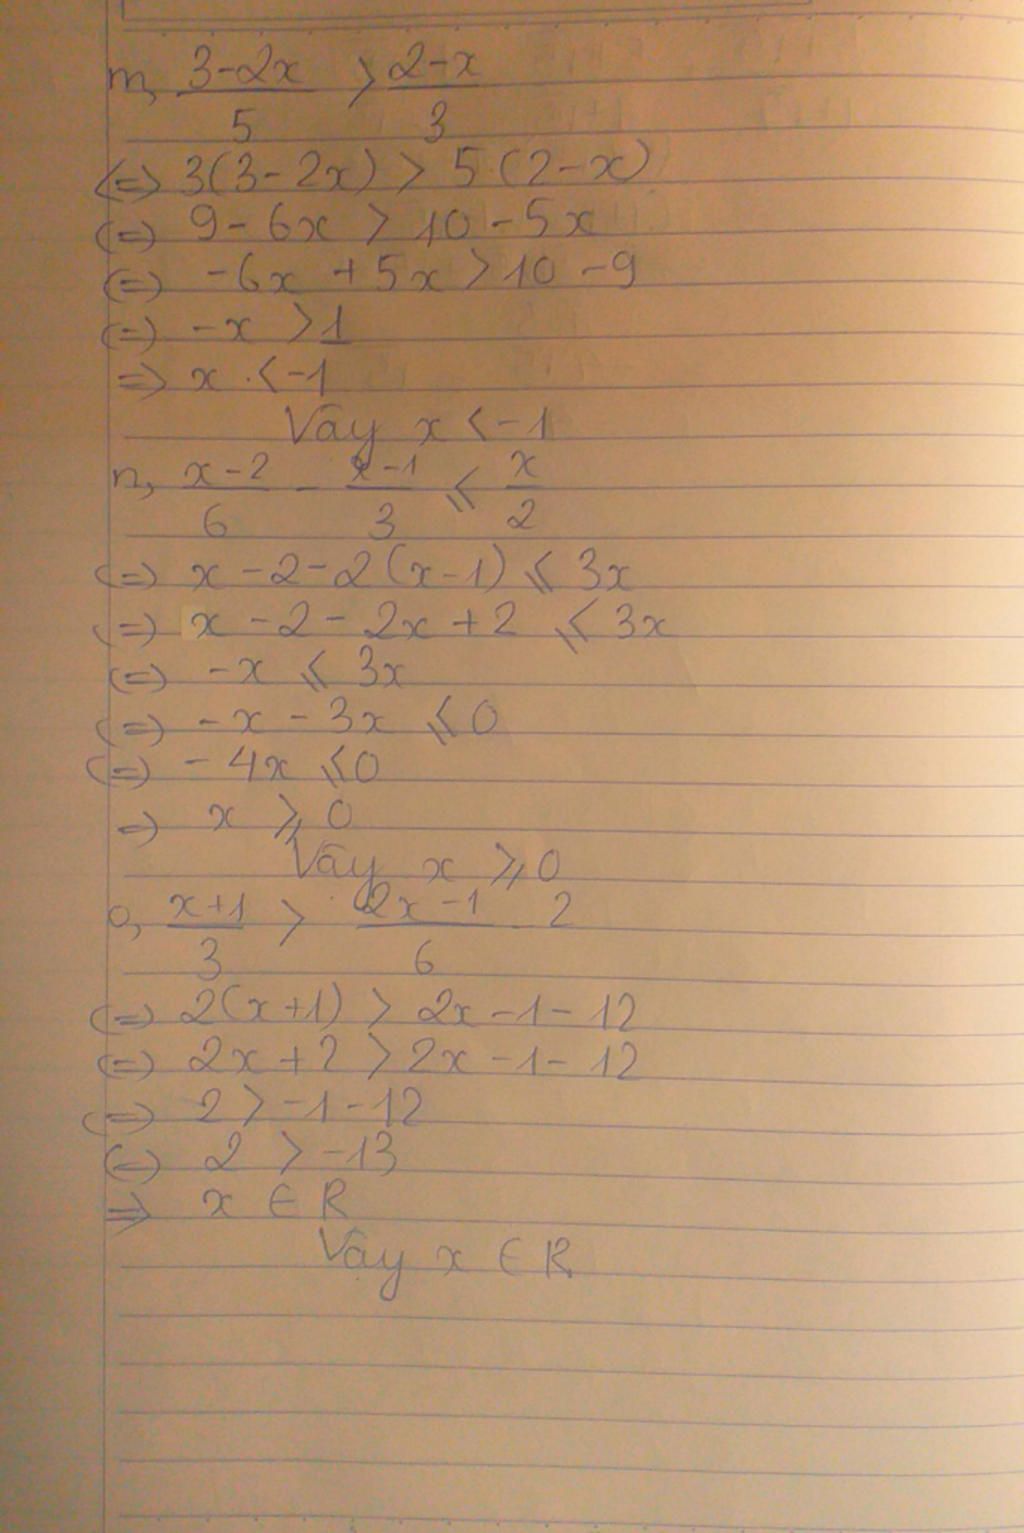 m, (3-2x)/5 > (2-x)/3
<=> 3(3-2x) > 5(2-x)
<=> 9-6x > 10-5x
<=> -6x+5x > 10-9
<=> -x > 1
=> x < -1
Vây x < -1
n, (x-2)/6 - (x-1)/3 ⩽ x/2
<=> x-2-2(x-1) ⩽ 3x
<=> x-2-2x+2 ⩽ 3x
<=> -x ⩽ 3x
<=> -x-3x ⩽ 0
<=> -4x ⩽ 0
=> x ⩾ 0
Vây x ⩾ 0
o, (x+1)/3 > (2x-1)/6 - 2
<=> 2(x+1) > 2x-1-12
<=> 2x+2 > 2x-1-12
<=> 2 > -1-12
<=> 2 > -13
=> x ∈ R
Vây x ∈ R